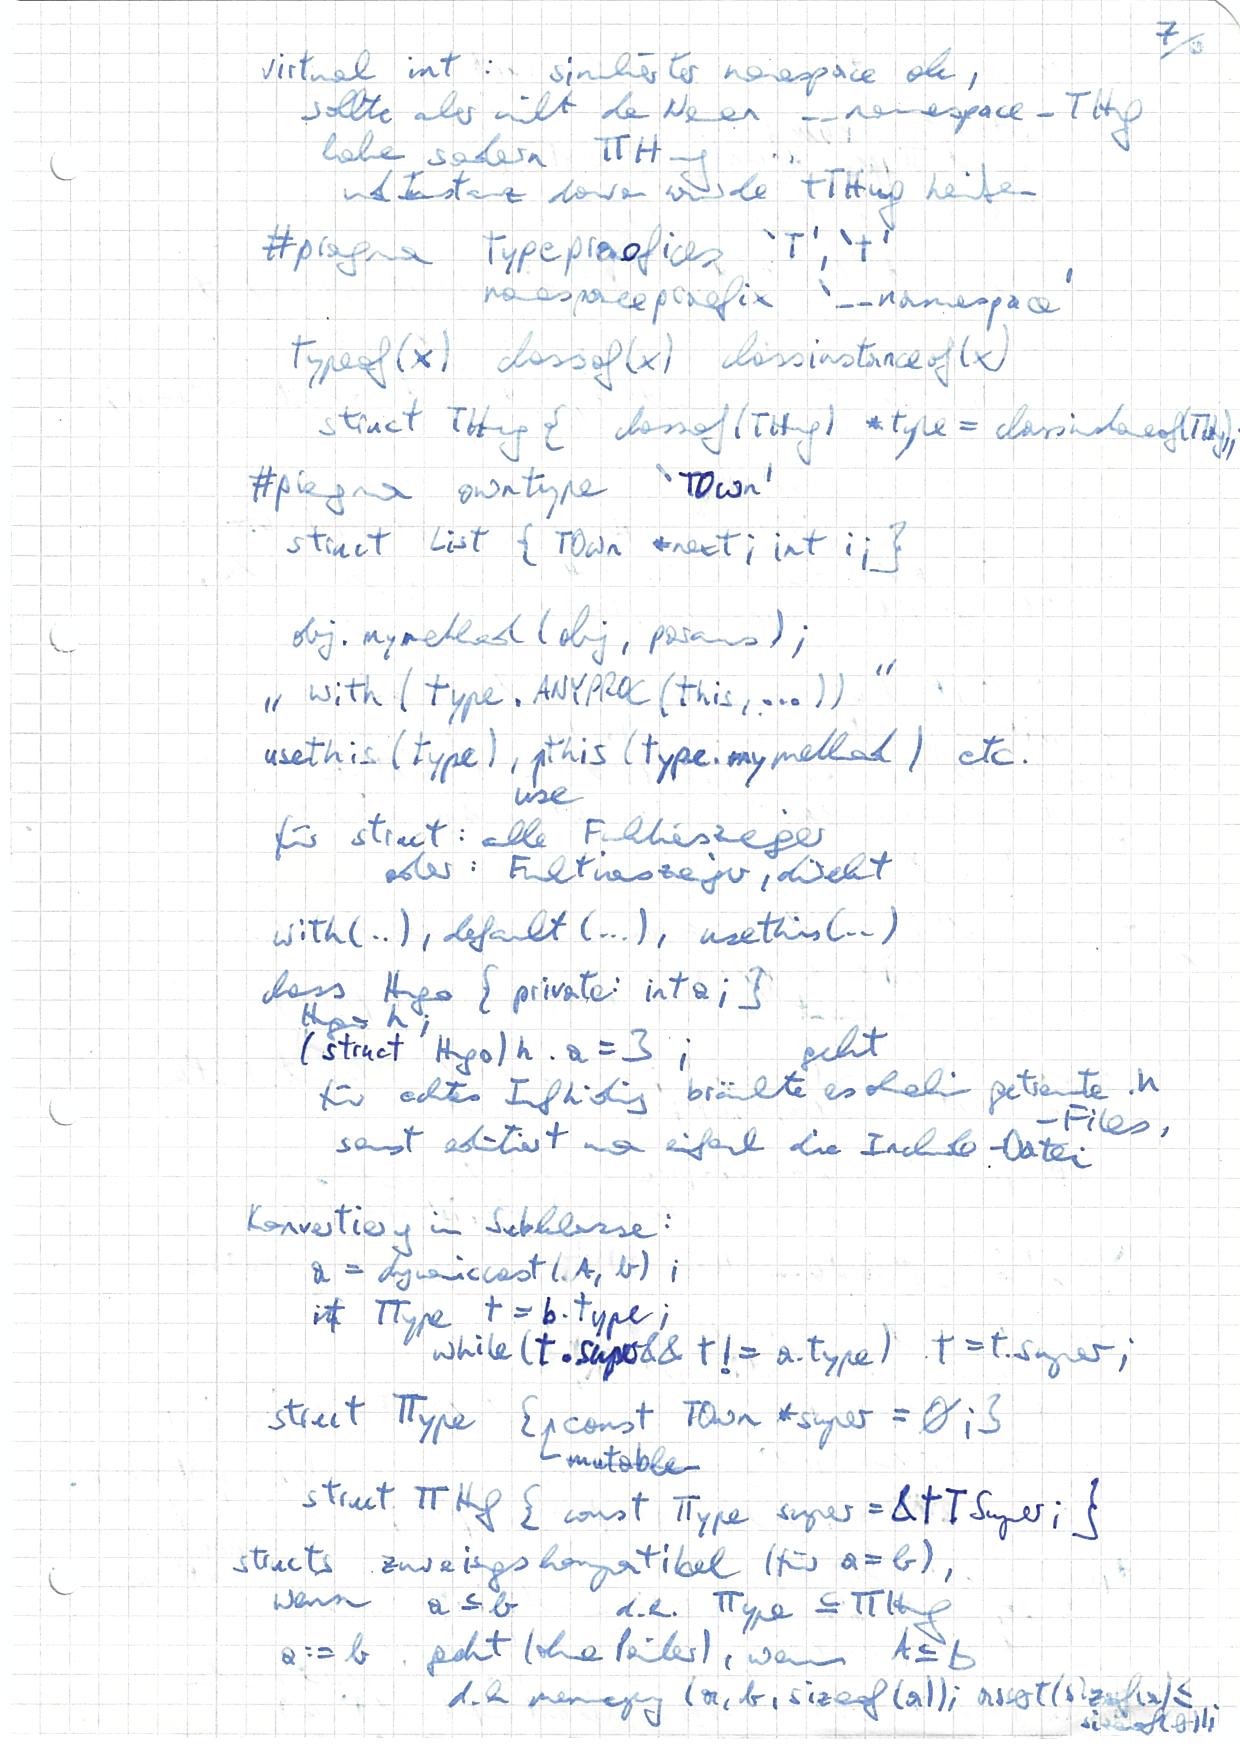 7/
virtual int : simulierter namespace ok,
sollte aber nicht den Namen __namespace_THug
habe sondern TTHug
und Instanz davon würde tTHug heißen
#pragma typepraefices 'T', 't'
namespacepraefix '__namespace'
typeof(x) classof(x) classinstanceof(x)
struct THug { classof(THug) *type = classinstanceof(THug);
#pragma owntype 'TOwn'
struct List { TOwn *next; int i; }
obj.mymethod(obj, params);
„ with (type.ANYPROC(this,...)) “
usethis(type), usethis(type.mymethod) etc.
für struct : alle Funktionszeiger
oder : Funktionszeiger, direkt
with(..), default(...), usethis(..)
class Hugo { private: int a; }
Hugo h;
(struct Hugo)h.a = 3 ; geht
für echtes Infhiding bräuchte es ohnehin getrennte .h
-Files,
sonst editiert man einfach die Include-Datei
Konvertierg in Subklasse :
a = dynamiccast(A, b) ;
TType t = b.type;
while(t.super && t != a.type) t = t.super;
struct TType { const TOwn *super = 0; }
mutable
struct TTHug { const TType super = &tTSuper; }
structs zuweisungskompatibel (für a = b),
wenn a ≤ b d.h. TType ⊆ TTHug
a := b geht (ohne Fehler), wenn A ≤ b
d.h memcpy (a, b, sizeof(a)); assert(sizeof(a) ≤
sizeof(b));